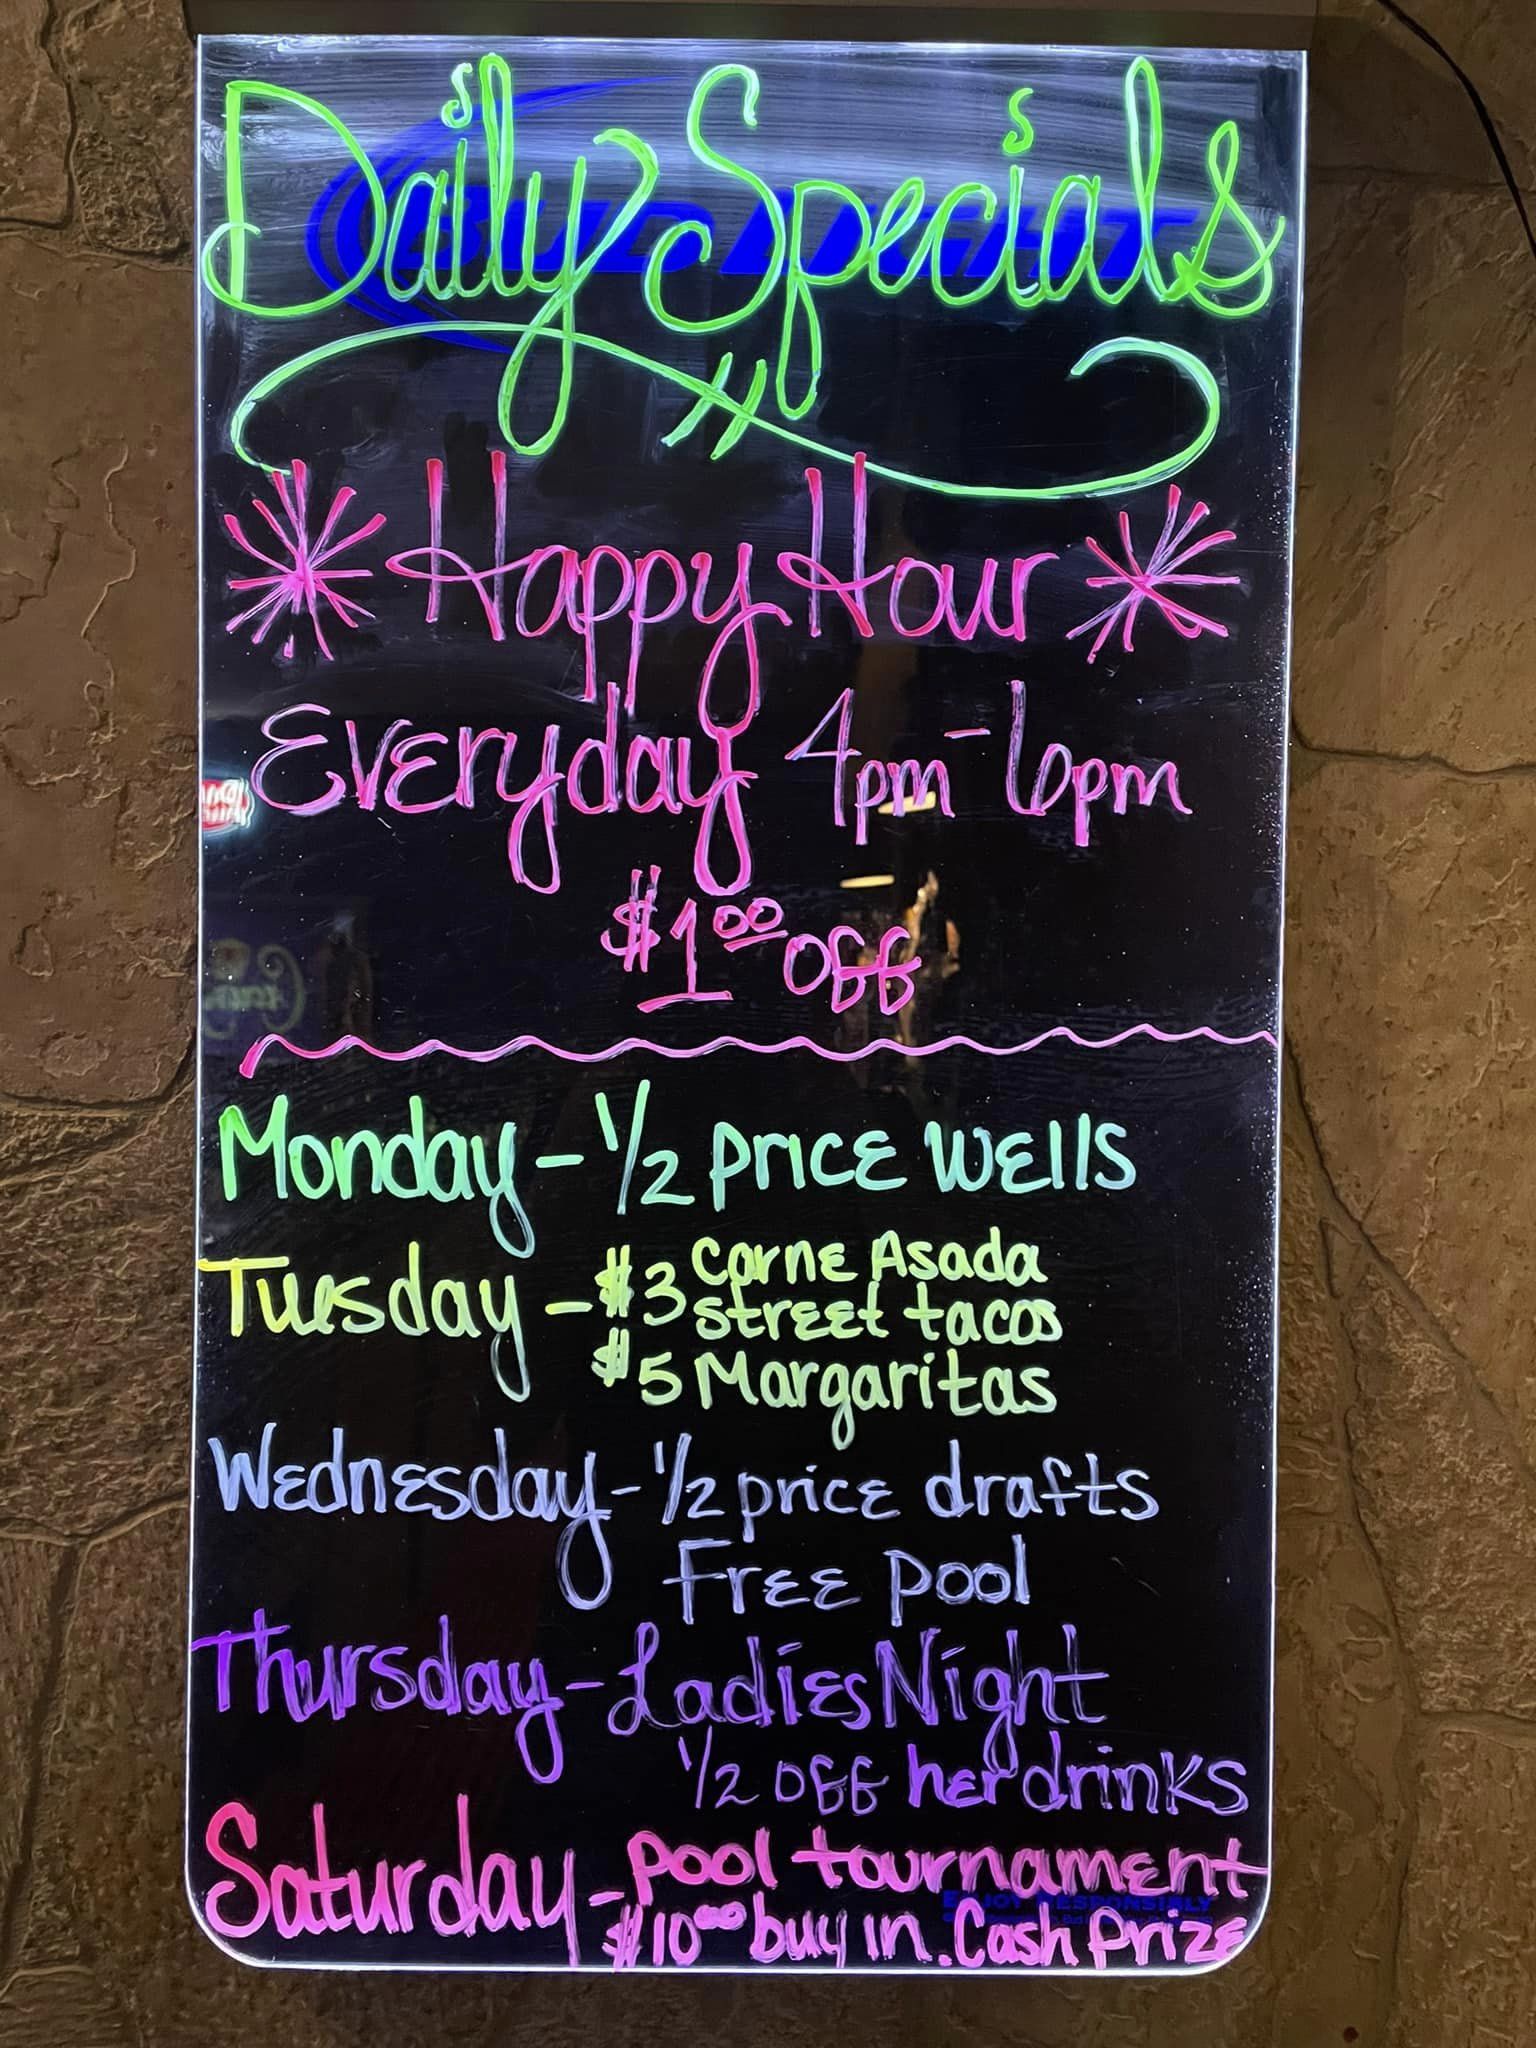 Daily Specials
BUD LIGHT
Happy Hour
Everyday 4pm-6pm
$1.00 off
Monday - 1/2 price wells
Tuesday - $3 Carne Asada
street tacos
$5 Margaritas
Wednesday - 1/2 price drafts
Free pool
Thursday - Ladies Night
1/2 off her drinks
Saturday - pool tournament
$10.00 buy in. Cash Prize
ENJOY RESPONSIBLY